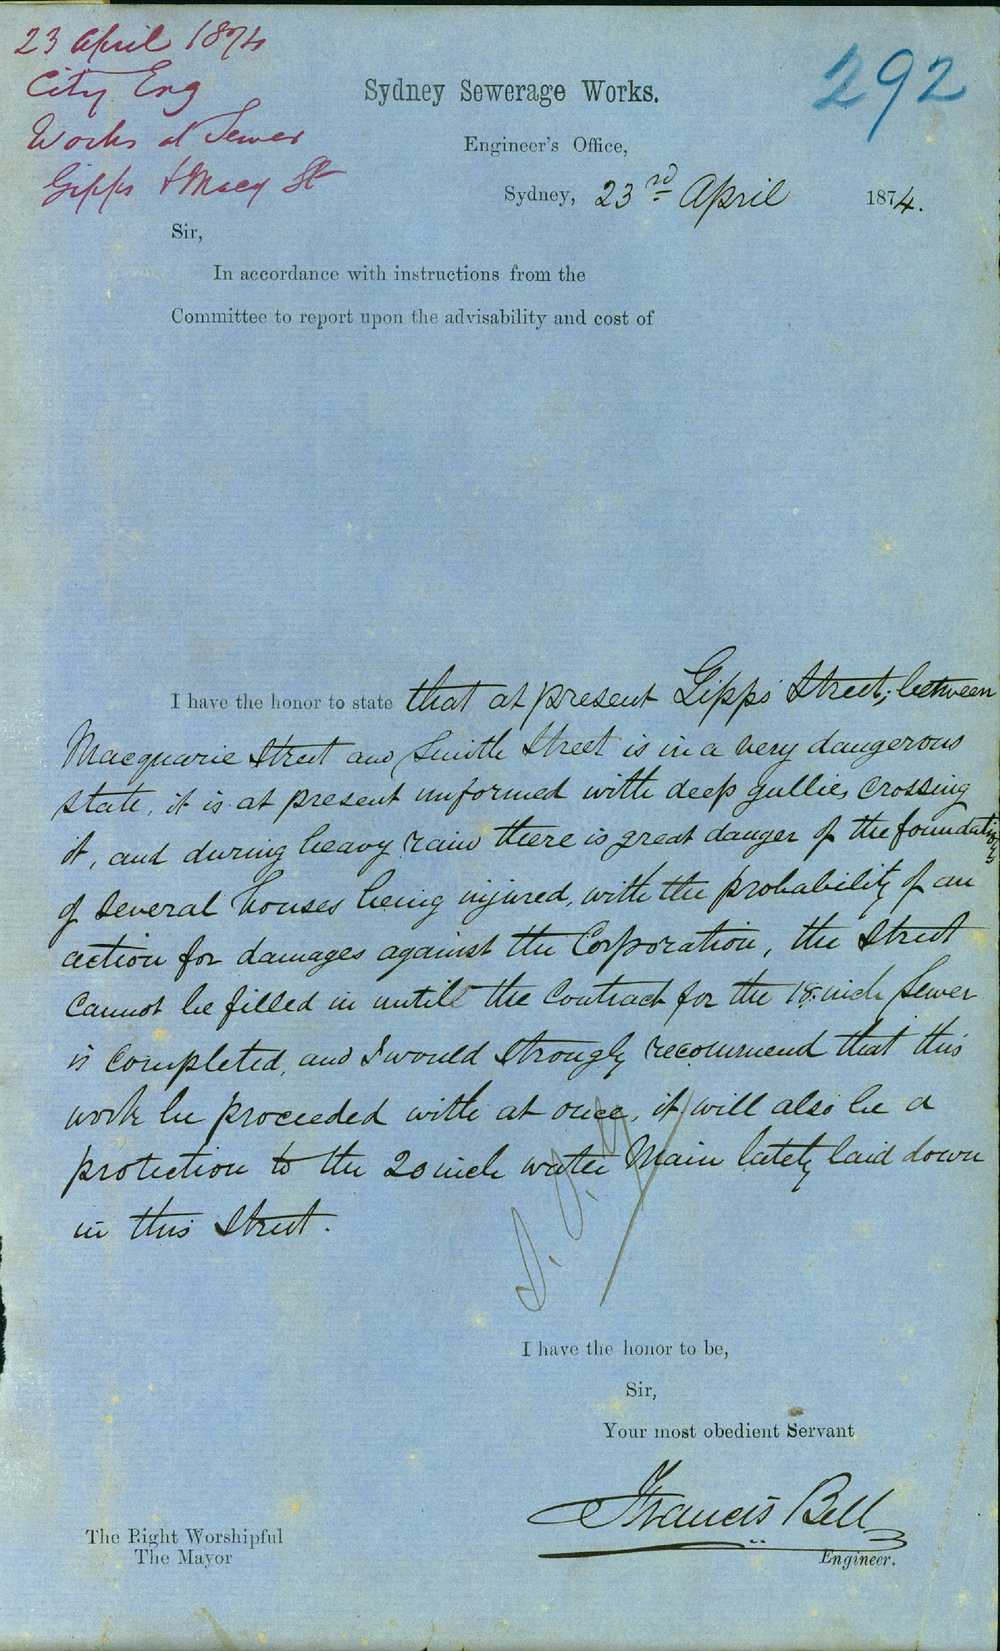 23 April 1874
City Eng
Works at Sewer
Gipps & Macq St
292
Sydney Sewerage Works.
Engineer's Office,
Sydney, 23rd April 1874.
Sir,
In accordance with instructions from the
Committee to report upon the advisability and cost of
I have the honor to state that at present Gipps Street, between
Macquarie Street and Smith Street is in a very dangerous
state, it is at present unformed with deep gullies crossing
it, and during heavy rain there is great danger of the foundations
of several houses being injured, with the probability of an
action for damages against the Corporation, the Street
cannot be filled in until the Contract for the 18 inch Sewer
is completed, and I would strongly recommend that this
work be proceeded with at once, it will also be a
protection to the 20 inch water Main lately laid down
in this Street.
I have the honor to be,
Sir,
Your most obedient Servant
Francis Bell
Engineer.
The Right Worshipful
The Mayor